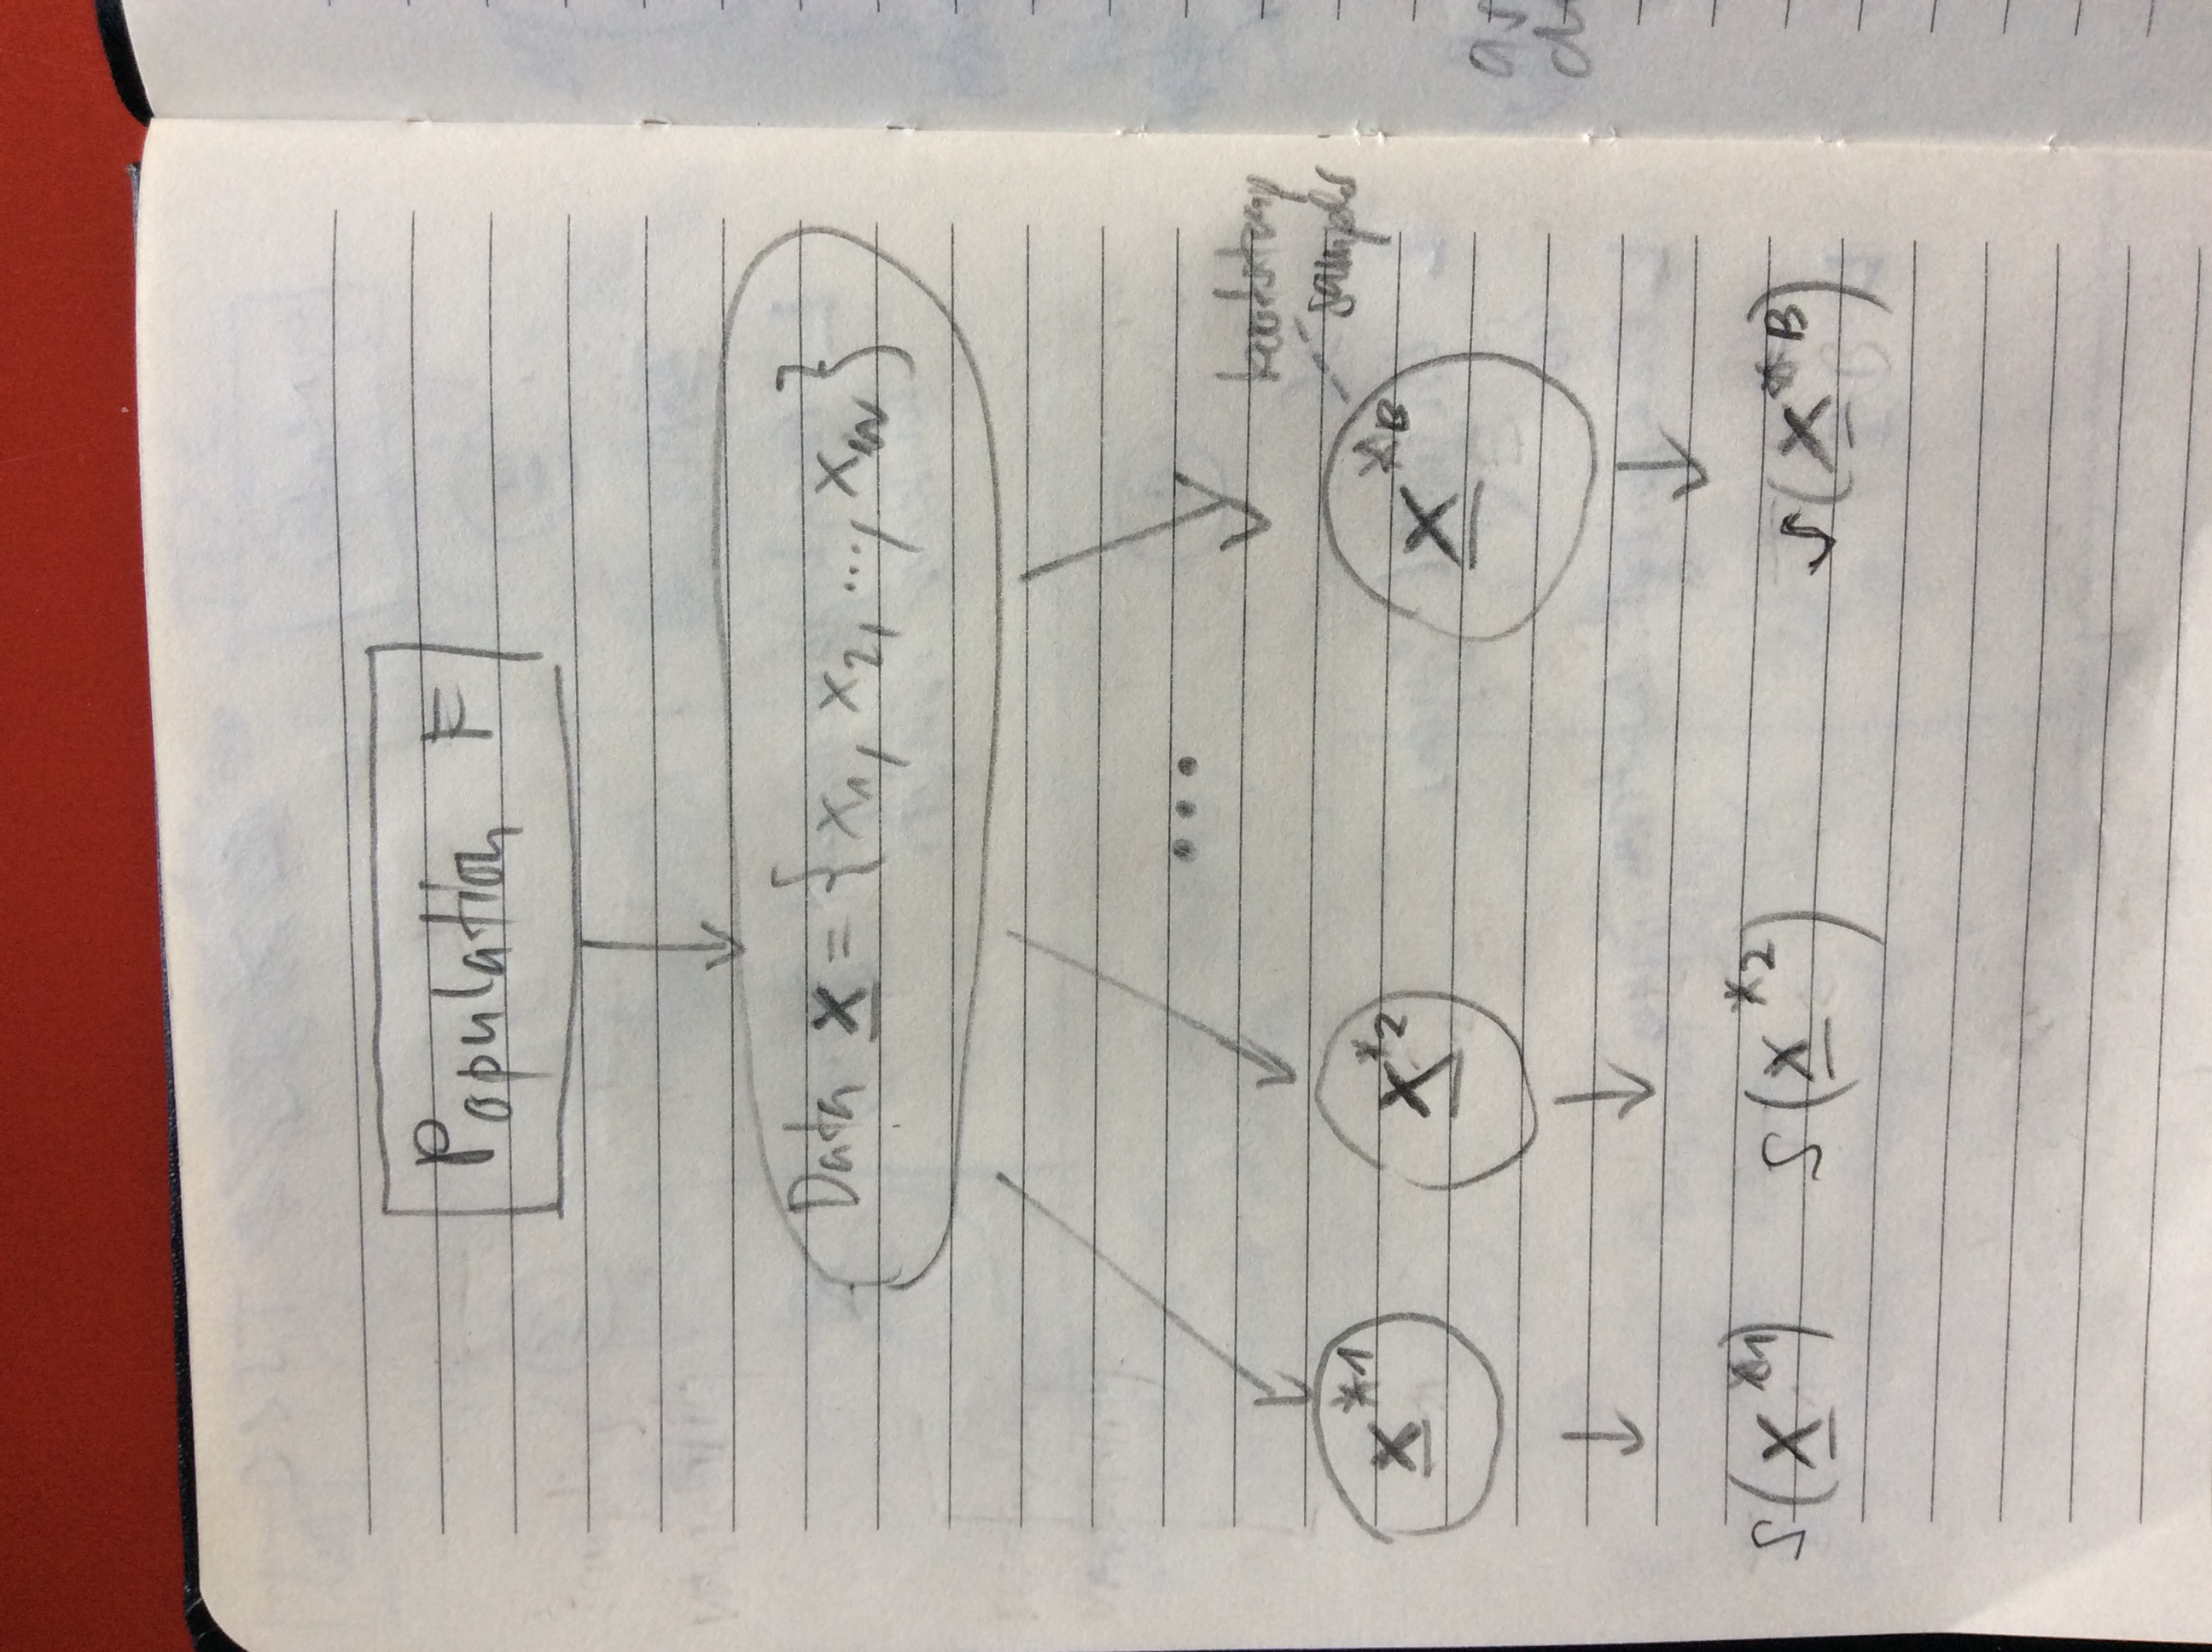 Population F
Data x = {x₁, x₂, ..., xₙ}
...
bootstrap
samples
x*¹ x*² x*ᴮ
s(x*¹) s(x*²) s(x*ᴮ)